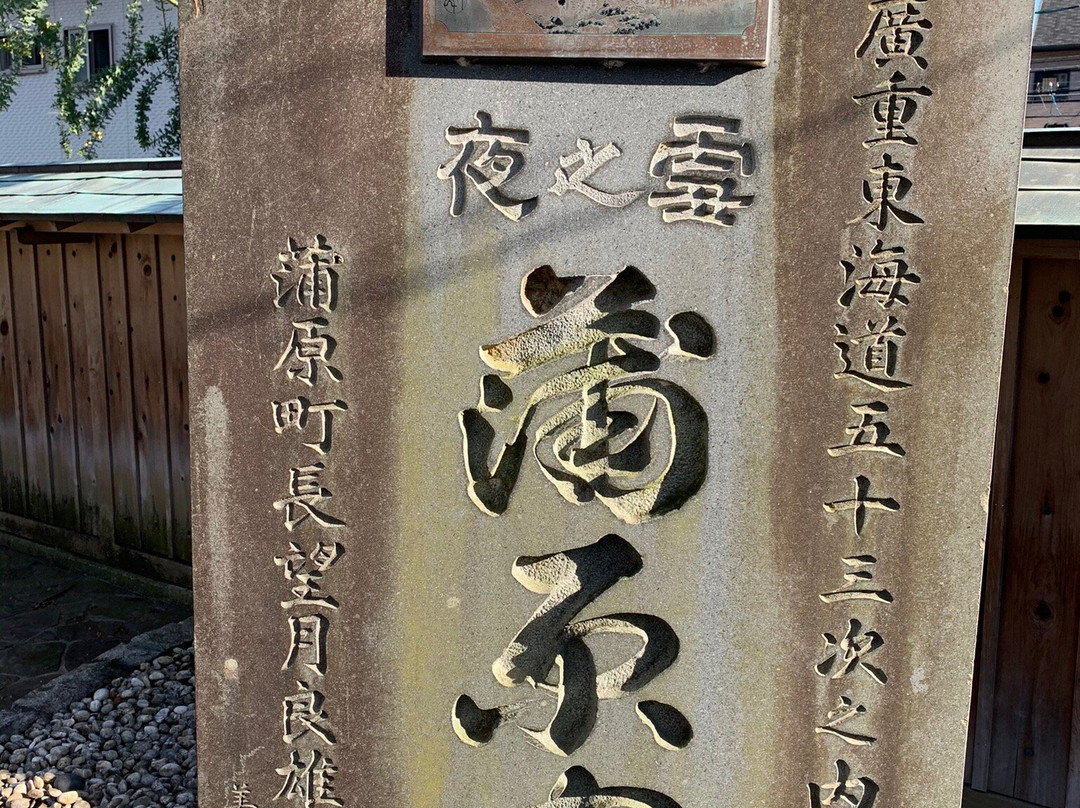 廣重東海道五十三次之内
夜之雪
蒲原
蒲原町長望月良雄